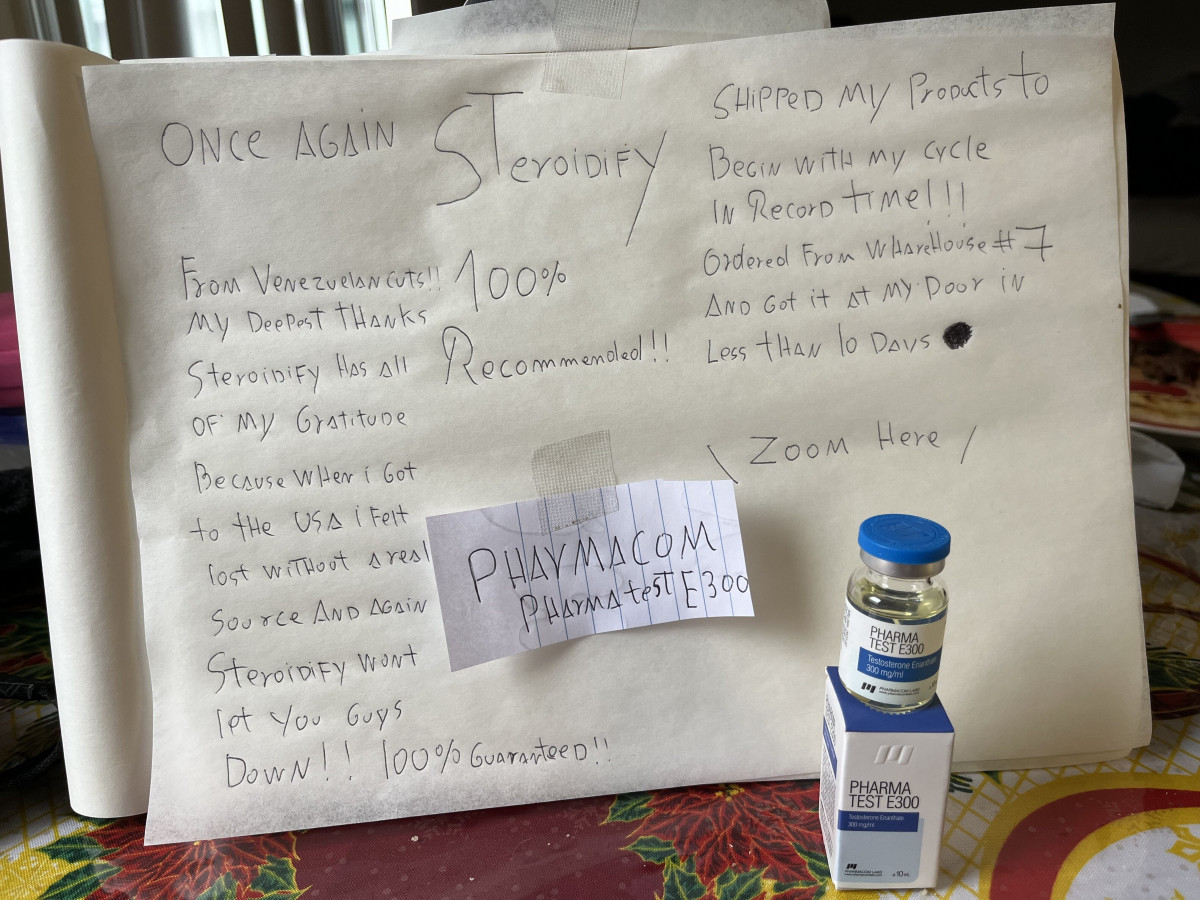 ONCE AGAIN STEROIDIFY
FROM VENEZUELANCUTS!! 100%
MY DEEPEST THANKS
STEROIDIFY HAS ALL RECOMMENDED!!
OF MY GRATITUDE
BECAUSE WHEN i GOT
to tHE USA i FELT
lost WITHOUT A REAL
SOURCE AND AGAIN
STEROIDIFY WONT
let YOU GUYS
DOWN!! 100% GUARANTEED!!
SHIPPED MY PRODUCTS TO
BEGIN WITH MY CYCLE
IN RECORD TIME!!!
ORDERED FROM WHAREHOUSE #7
AND GOT it AT MY DOOR iN
LESS THAN 10 DAYS
\ ZOOM HERE /
PHARMACOM
PHARMA test E300
PHARMA
TEST E300
Testosterone Enanthate
300 mg/ml
PHARMACOM LABS
PHARMA
TEST E300
Testosterone Enanthate
300 mg/ml
PHARMACOM LABS
10 ml